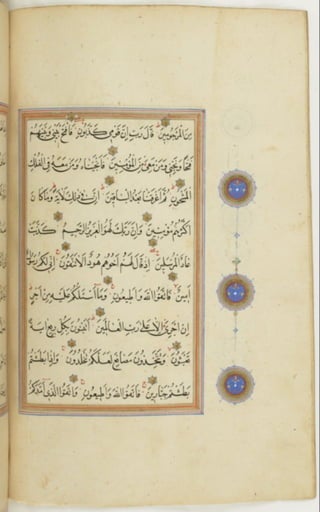 مِنَ الْمَرْجُومِينَ قَالَ رَبِّ إِنَّ قَوْمِي كَذَّبُونِ فَافْتَحْ بَيْنِي وَبَيْنَهُمْ
فَتْحًا وَنَجِّنِي وَمَنْ مَعِيَ مِنَ الْمُؤْمِنِينَ فَأَنْجَيْنَاهُ وَمَنْ مَعَهُ فِي الْفُلْكِ
الْمَشْحُونِ ثُمَّ أَغْرَقْنَا بَعْدُ الْبَاقِينَ إِنَّ فِي ذَلِكَ لَآيَةً وَمَا كَانَ
أَكْثَرُهُمْ مُؤْمِنِينَ وَإِنَّ رَبَّكَ لَهُوَ الْعَزِيزُ الرَّحِيمُ كَذَّبَتْ
عَادٌ الْمُرْسَلِينَ إِذْ قَالَ لَهُمْ أَخُوهُمْ هُودٌ أَلَا تَتَّقُونَ إِنِّي لَكُمْ رَسُولٌ
أَمِينٌ فَاتَّقُوا اللَّهَ وَأَطِيعُونِ وَمَا أَسْأَلُكُمْ عَلَيْهِ مِنْ أَجْرٍ
إِنْ أَجْرِيَ إِلَّا عَلَى رَبِّ الْعَالَمِينَ أَتَبْنُونَ بِكُلِّ رِيعٍ آيَةً
تَعْبَثُونَ وَتَتَّخِذُونَ مَصَانِعَ لَعَلَّكُمْ تَخْلُدُونَ وَإِذَا بَطَشْتُمْ
بَطَشْتُمْ جَبَّارِينَ فَاتَّقُوا اللَّهَ وَأَطِيعُونِ وَاتَّقُوا الَّذِي أَمَدَّكُمْ